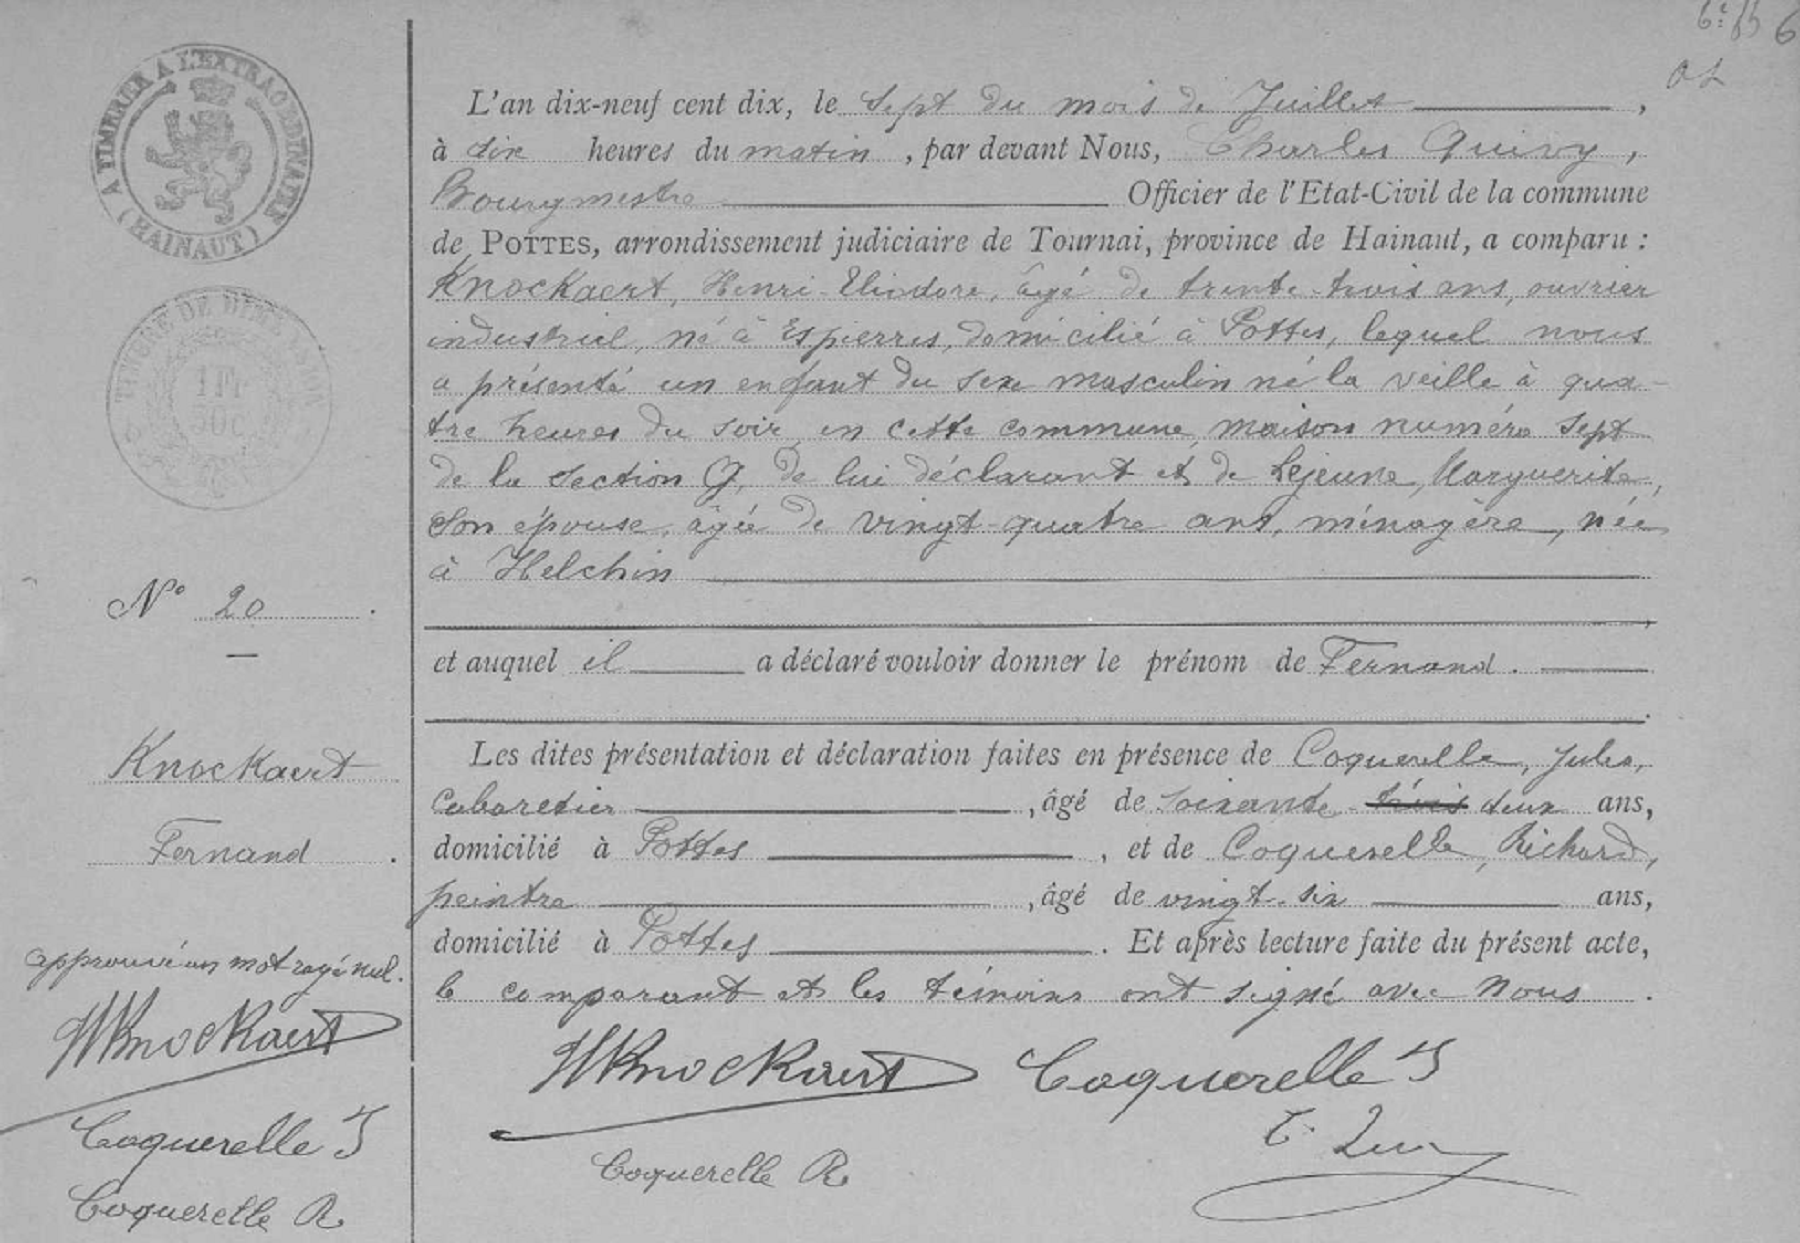 A TIMBRER A L'EXTRAORDINAIRE
(HAINAUT)
TIMBRE DE DIMENSION
1 Fr
50 c
6
L'an dix-neuf cent dix, le sept du mois de Juillet,
à dix heures du matin, par devant Nous, Charles Quivy,
Bourgmestre Officier de l'Etat-Civil de la commune
de POTTES, arrondissement judiciaire de Tournai, province de Hainaut, a comparu :
Knockaert, Henri-Eliodore, âgé de trente-trois ans, ouvrier
industriel, né à Espierres, domicilié à Pottes, lequel nous
a présenté un enfant du sexe masculin né la veille à qua-
tre heures du soir, en cette commune, maison numéro sept
de la section G, de lui déclarant et de Lejeune, Marguerite,
son épouse, âgée de vingt-quatre ans, ménagère, née
à Helchin
et auquel il a déclaré vouloir donner le prénom de Fernand.
Les dites présentation et déclaration faites en présence de Coquerelle, Jules,
cabaretier, âgé de soixante-trois deux ans,
domicilié à Pottes, et de Coquerelle, Richard,
peintre, âgé de vingt-six ans,
domicilié à Pottes. Et après lecture faite du présent acte,
le comparant et les témoins ont signé avec Nous.
HKnockaert Coquerelle J
Coquerelle R
N° 20
Knockaert
Fernand.
approuvé un mot rayé nul.
HKnockaert
Coquerelle J
Coquerelle R